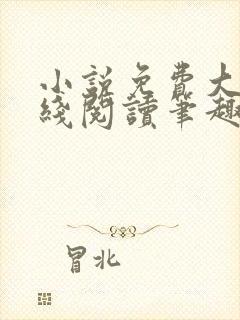 小說免費大
綫閱讀筆趣
冒北